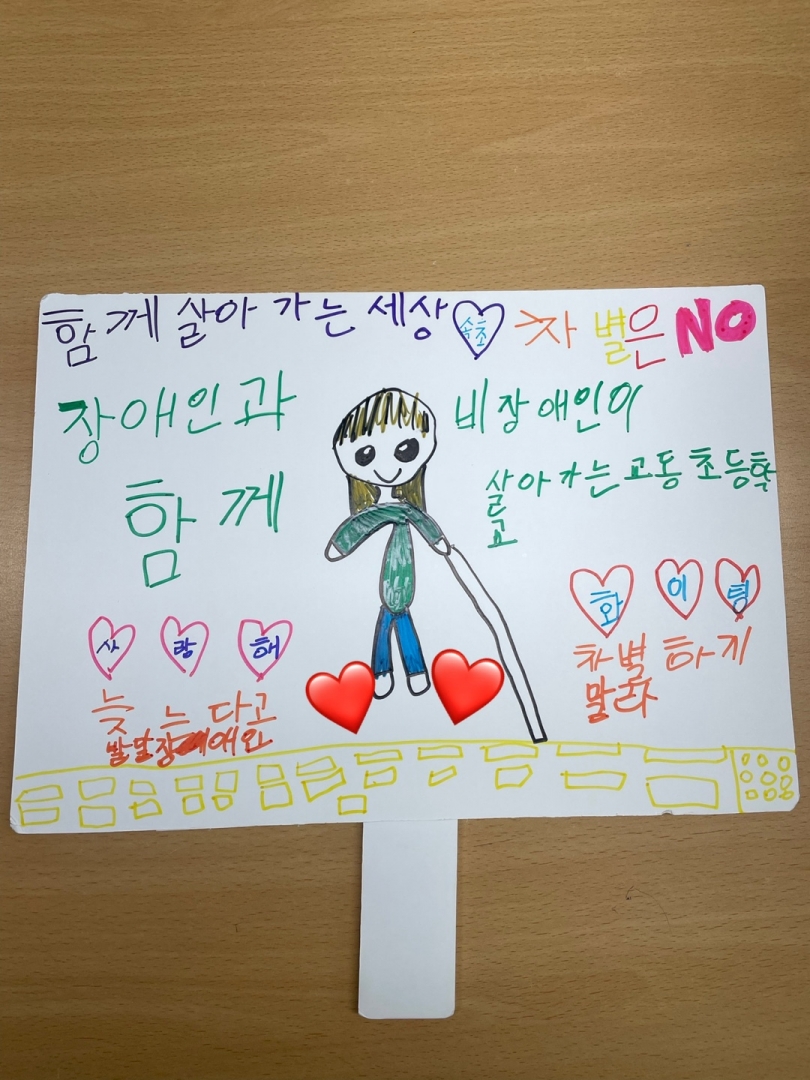 함께 살아 가는 세상 속초 차별은 NO
장애인과 비장애인이
함께 살아가는 교동초등학교
사랑해 화이팅
늦는다고 차별하게
발달장애인 말라